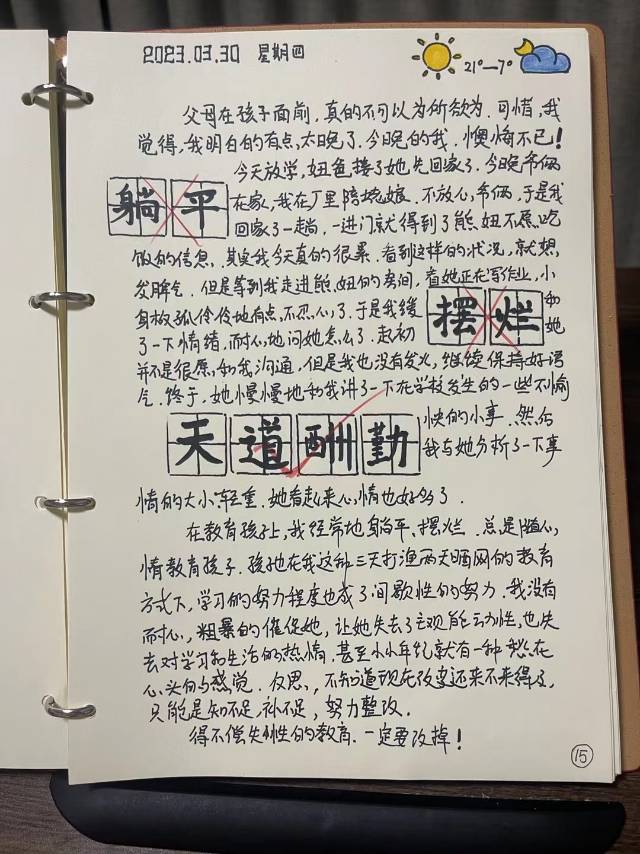 2023.03.30 星期四
21°—7°
父母在孩子面前,真的不可以为所欲为.可惜,我
觉得,我明白的有点,太晚了.今晚的我.懊悔不已!
今天放学,妞爸接了她先回家了.今晚爷俩
躺平
在家,我在厂里陪烧娘.不放心,爷俩,于是我
回家了一趟,一进门就得到了熊妞不愿吃
饭的信息.其实我今天真的很累.看到这样的状况,就想
发脾气.但是等到我走进熊妞的房间,看她正在写作业,小
身板孤伶伶地有点,不忍心了.于是我缓
摆烂
和
了一下情绪,而耐心地问她怎么了.起初
她
并不是很愿和我沟通,但是我也没有发火,继续保持好语
气.终于,她慢慢地和我讲了一下在学校发生的一些不愉
天道酬勤
快的小事.然后
我与她分析了一下事
情的大小、轻重.她看起来心情也好多了.
在教育孩子上,我经常地躺平、摆烂.总是随心
情教育孩子.孩她在我这种三天打渔两天晒网的教育
方式下,学习的努力程度也成了间歇性的努力.我没有
耐心,粗暴的催促她,让她失去了主观能动性,也失
去对学习和生活的热情.甚至小小年纪就有一种愁在
心头的感觉.反思,不知道现在改变还来不来得及,
只能是知不足,补不足,努力整改.
得不偿失性的教育.一定要改掉!
15